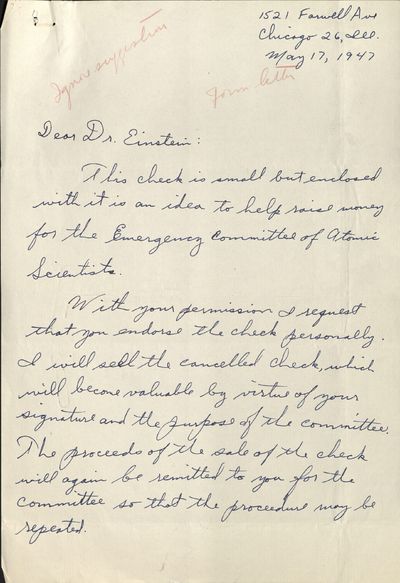 1521 Farwell Ave
Chicago 26, Ill.
May 17, 1947
Ignore suggestion
Form letter
Dear Dr. Einstein:
This check is small but enclosed
with it is an idea to help raise money
for the Emergency Committee of Atomic
Scientists.
With your permission I request
that you endorse the check personally.
I will sell the cancelled check, which
will become valuable by virtue of your
signature and the purpose of the committee.
The proceeds of the sale of the check
will again be remitted to you for the
committee so that the proceedure may be
repeated.